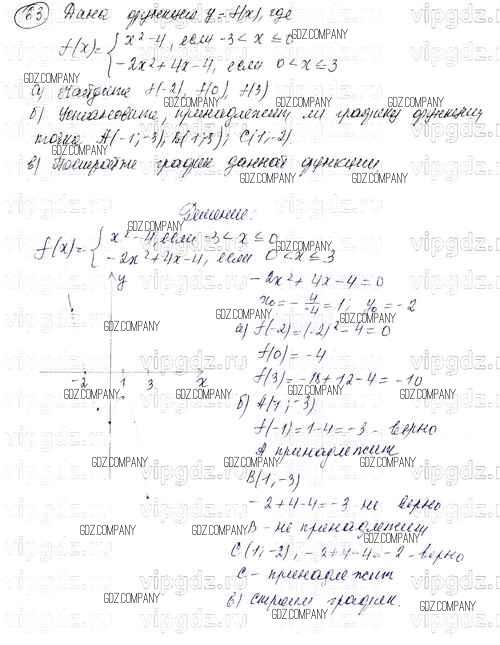 63 Дана функция y = f(x), где
f(x) = { x² - 4, если -3 < x ≤ 0
- 2x² + 4x - 4, если 0 < x ≤ 3
а) Найдите f(-2), f(0), f(3)
б) Установите, принадлежит ли графику функции
точка A(-1; -3), B(-1; 3); C(1; -2).
в) Постройте график данной функции
Решение:
f(x) = { x² - 4, если -3 < x ≤ 0
- 2x² + 4x - 4, если 0 < x ≤ 3
- 2x² + 4x - 4 = 0
x₀ = - 4/-4 = 1; y₀ = -2
а) f(-2) = (-2)² - 4 = 0
f(0) = -4
f(3) = -18 + 12 - 4 = -10
б) A(1; -3)
f(-1) = 1 - 4 = -3 - верно
A принадлежит
B(1, -3)
- 2 + 4 - 4 = -3 не верно
B - не принадлежит
C(1; -2), - 2 + 4 - 4 = -2 - верно
C - принадлежит
в) строим график.
y
-2 1 3 x
GDZ.COMPANY
vipgdz.ru